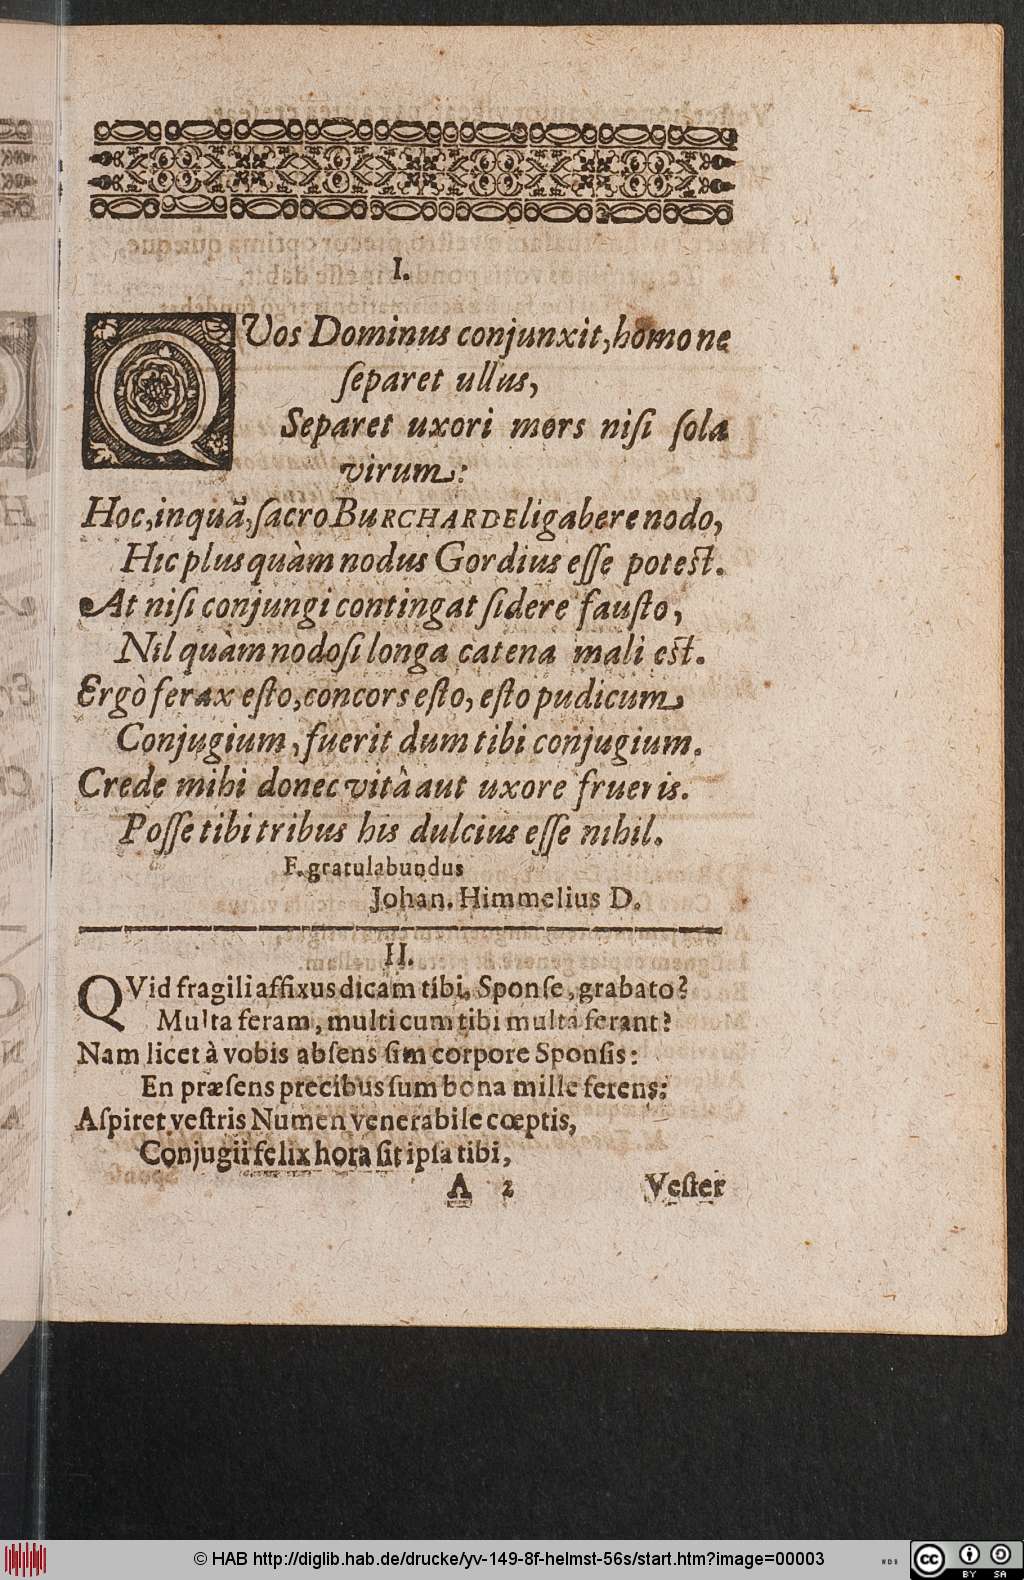 I.
QVos Dominus conjunxit, homo ne
ſeparet ullus,
Separet uxori mors niſi ſola
virum:
Hoc, inquã, ſacro BURCHARDE ligabere nodo,
Hic plus quàm nodus Gordius eſſe poteſt.
At niſi conjungi contingat ſidere fauſto,
Nil quàm nodoſi longa catena mali eſt.
Ergò ferax eſto, concors eſto, eſto pudicum
Conjugium, fuerit dum tibi conjugium.
Crede mihi donec vitâ aut uxore frueris.
Poſſe tibi tribus his dulcius eſſe nihil.
F. gratulabundus
Johan. Himmelius D.
II.
QVid fragili affixus dicam tibi, Sponſe, grabato?
Multa feram, multi cum tibi multa ferant?
Nam licet à vobis abſens ſim corpore Sponſis:
En præſens precibus ſum bona mille ferens:
Aſpiret veſtris Numen venerabile cœptis,
Conjugii felix hora ſit ipſa tibi,
A 2 Veſter
© HAB http://diglib.hab.de/drucke/yv-149-8f-helmst-56s/start.htm?image=00003
WDB
cc BY SA